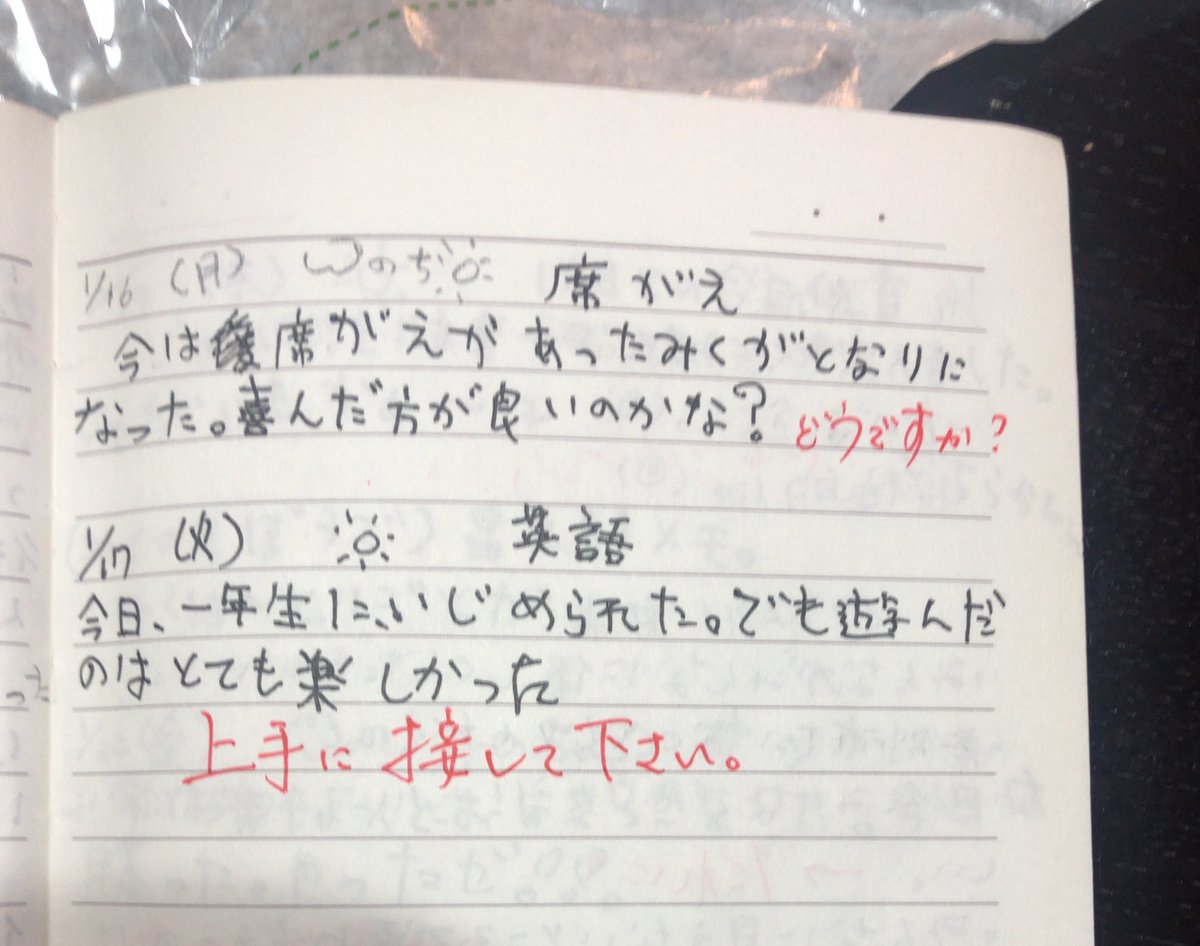 1/16 (月) のち 席がえ
今は席がえがあったみくがとなりに
なった。喜んだ方が良いのかな? どうですか?
1/17 (火) 英語
今日、一年生に、いじめられた。でも遊んだ
のはとても楽しかった
上手に接して下さい。